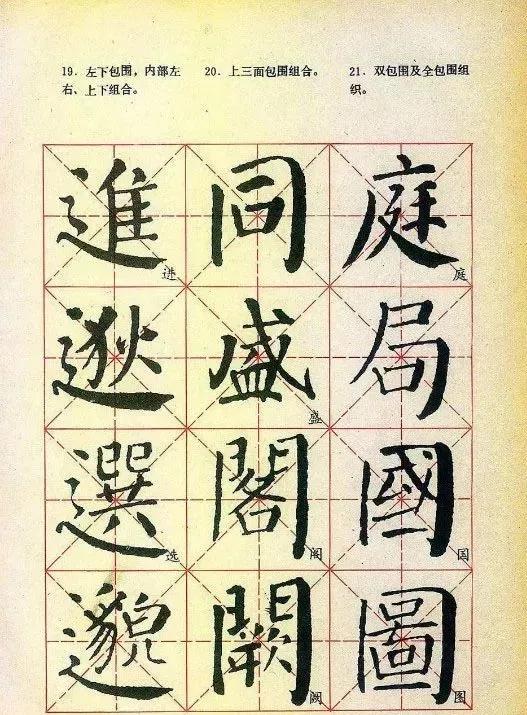 19. 左下包围，内部左
右、上下组合。
20. 上三面包围组合。
21. 双包围及全包围组
织。
進 进
同
庭 庭
逖
盛 盛
局
選 选
閣 阁
國 国
邈
闕 阙
圖 图